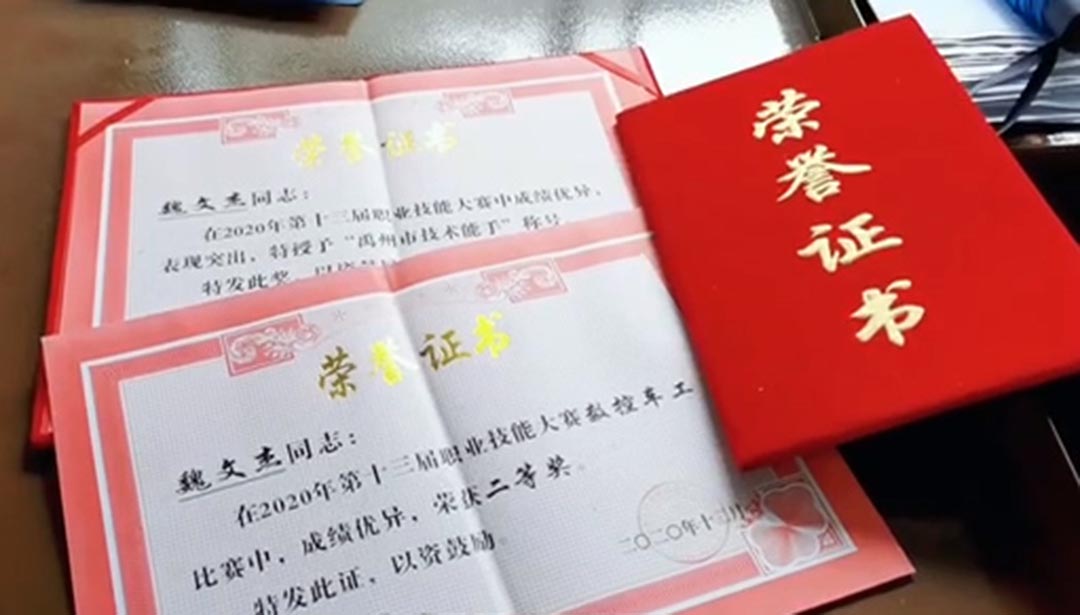 荣誉证书
魏文杰同志：
在2020年第十三届职业技能大赛中成绩优异，
表现突出，特授予“禹州市技术能手”称号
特发此奖，以资鼓
荣誉证书
魏文杰同志：
在2020年第十三届职业技能大赛数控车工
比赛中，成绩优异，荣获二等奖。
特发此证，以资鼓励。
二〇二〇年十二月
荣誉证书